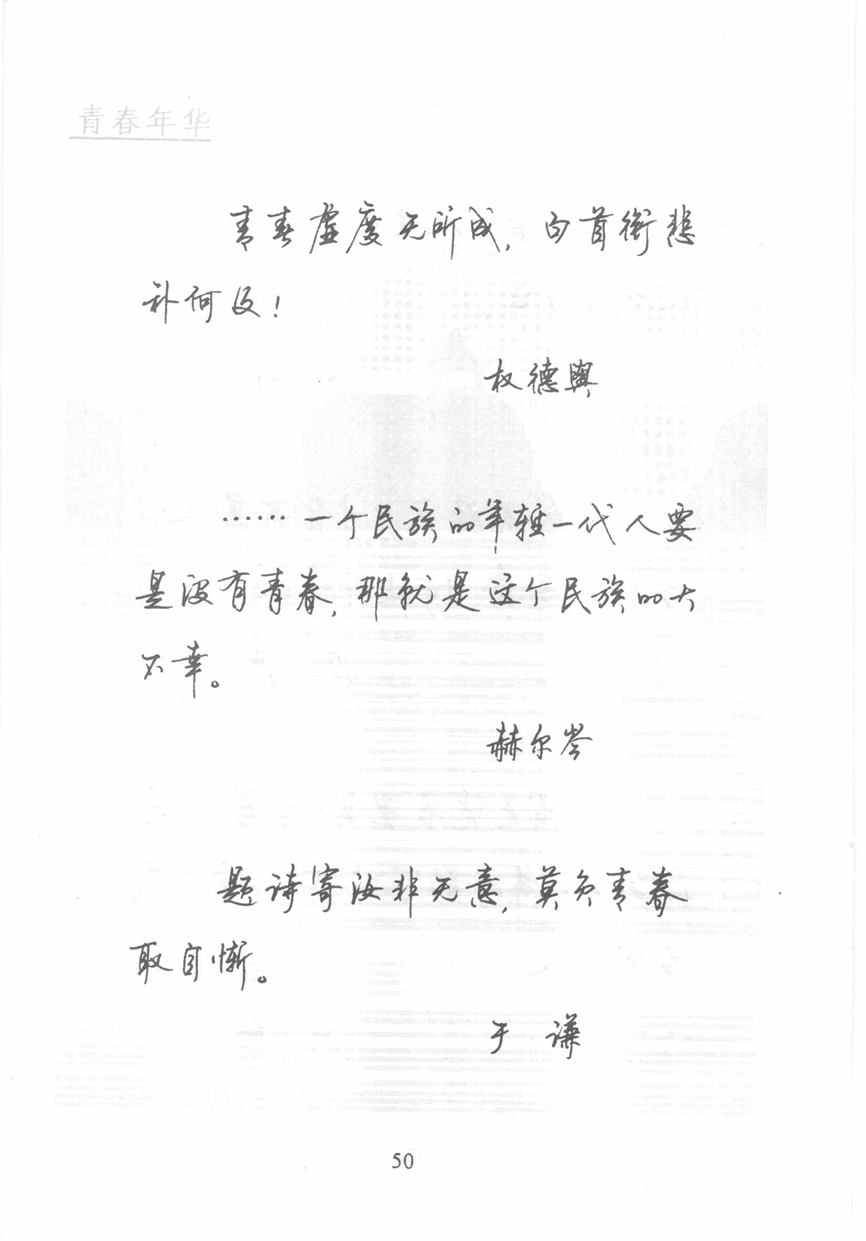 青春年华
青春虚度无所成，白首衔悲
补何及！
权德舆
……一个民族的年轻一代人要
是没有青春，那就是这个民族的大
不幸。
赫尔岑
题诗寄汝非无意，莫负青春
取自惭。
于 谦
50